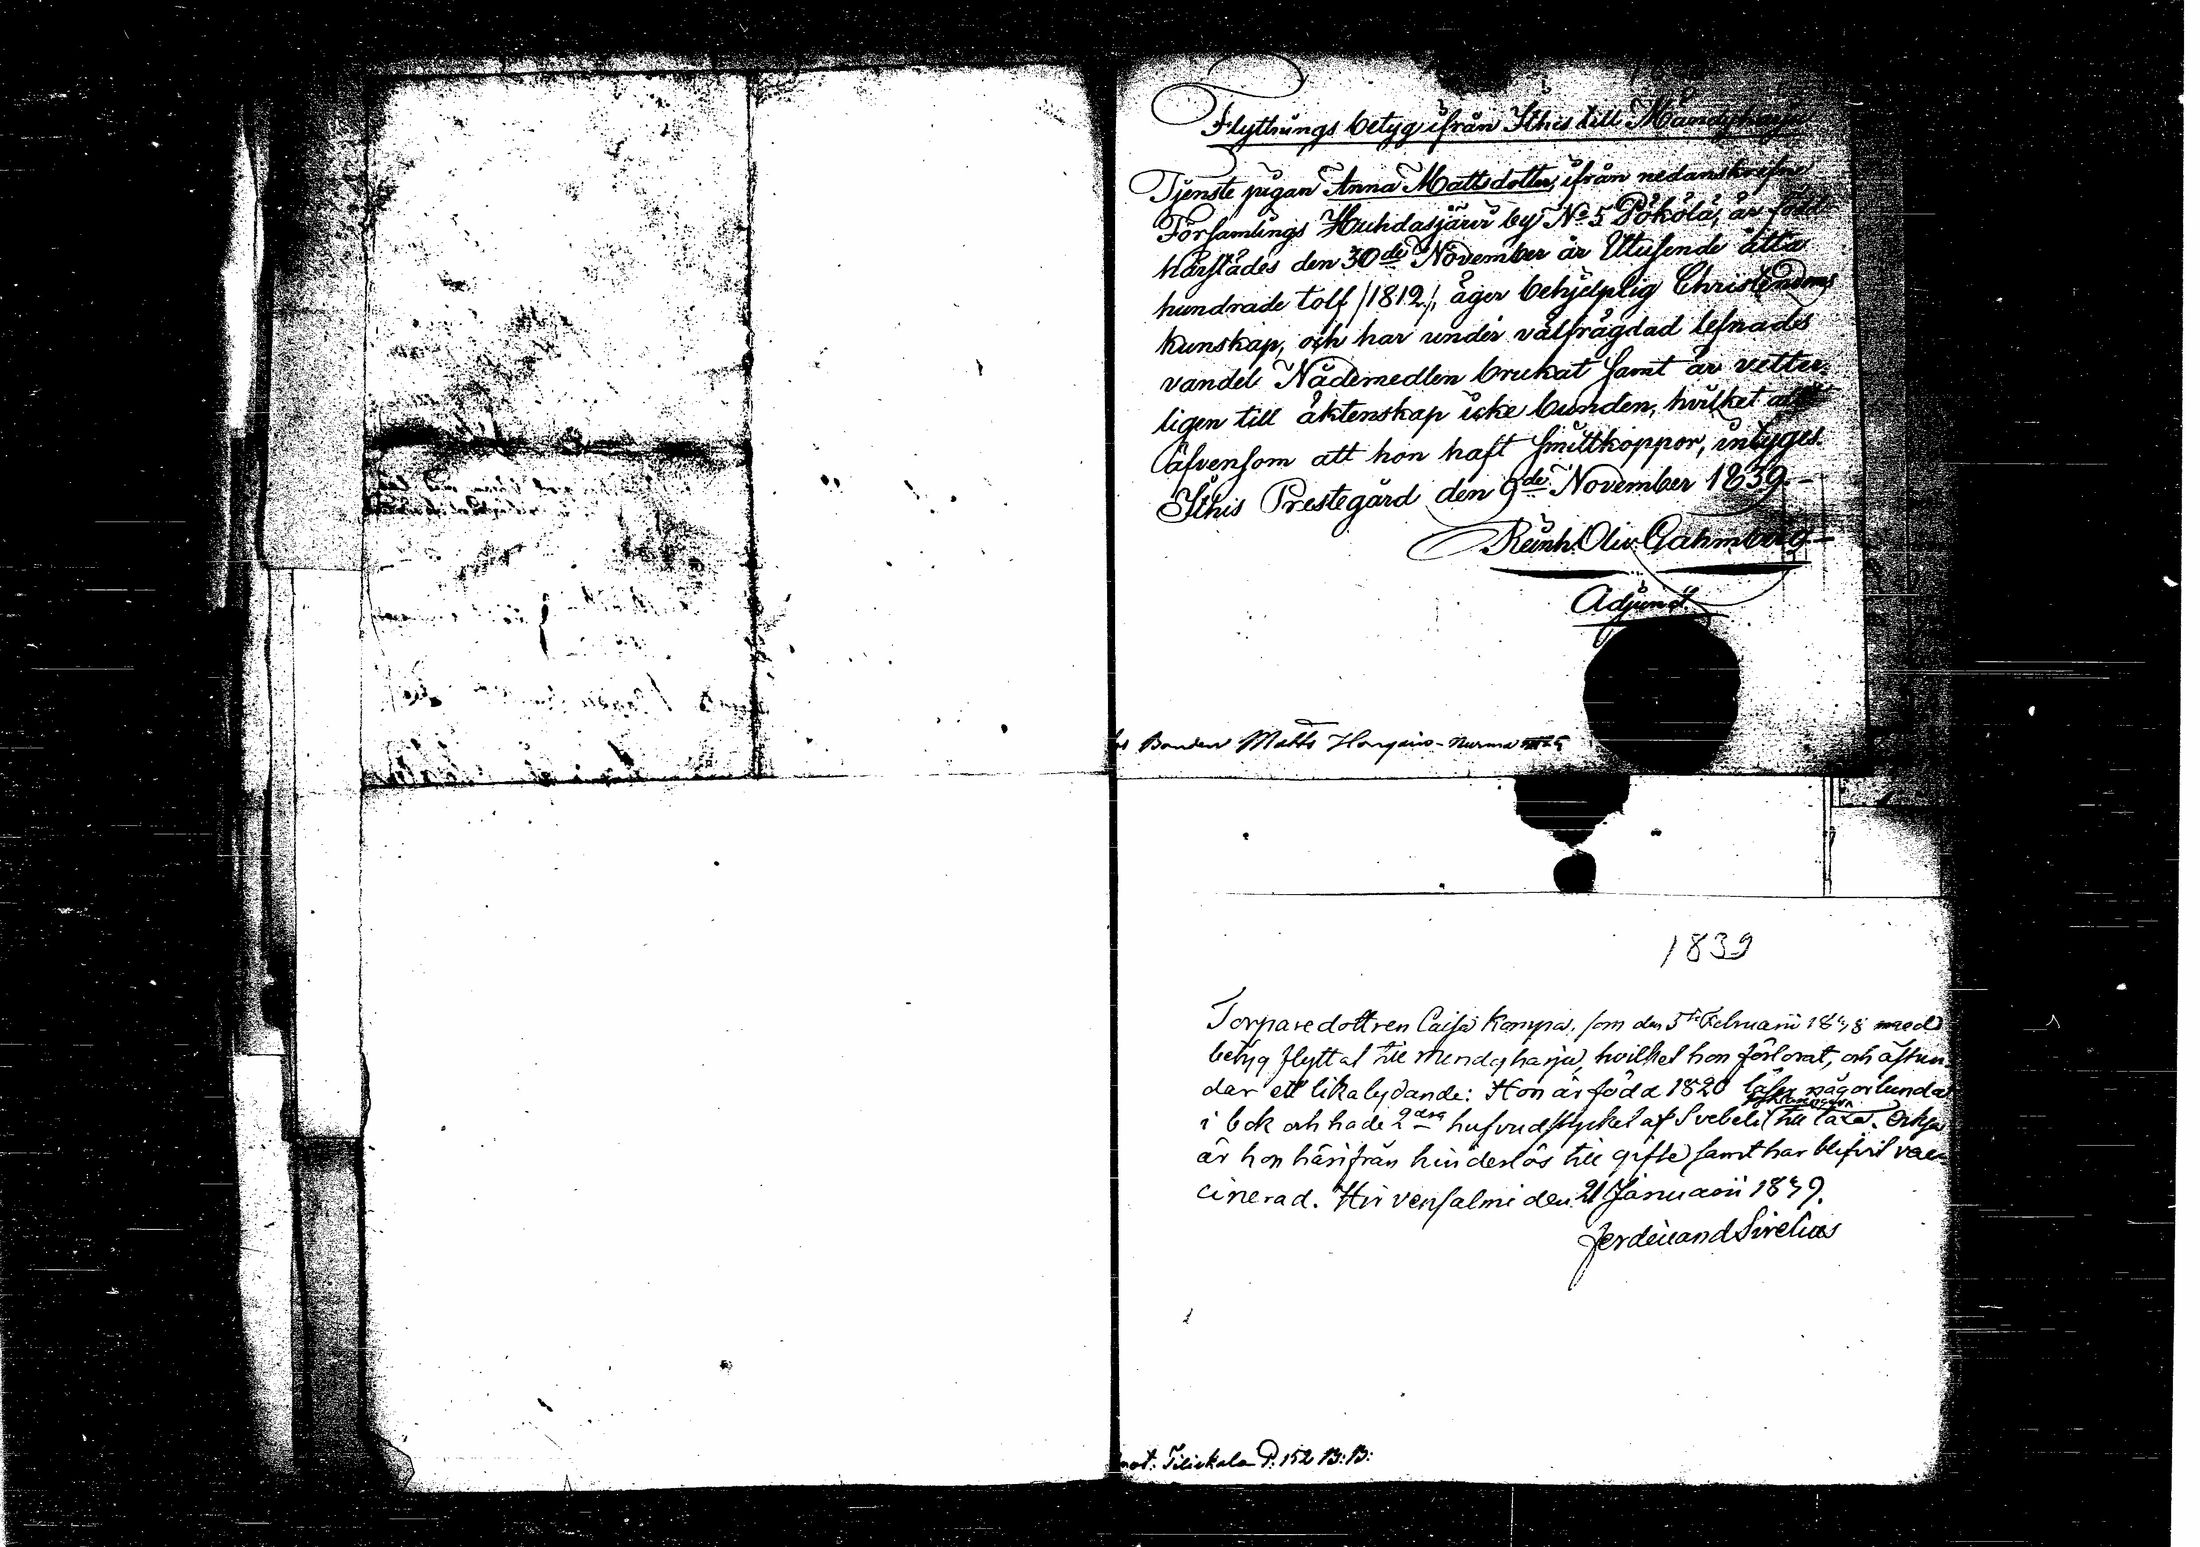 Flyttnings betyg ifrån Ithis till Mändyharju
Tjenste pigan Anna Mattsdotter, ifrån nedanskrefne
Församlings Huhdasjärvi by No 5 Pökölä, är född
härstädes den 30de November år Ettusende åtta
hundrade tolf /1812/, äger behjelplig Christendoms
kunskap, och har under välfrägdad lefnads
vandel Nådemedlen brukat samt är vetter-
ligen till äktenskap icke bunden, hvilket allt
äfvensom att hon haft smittkoppor, intyges.
Ithis Prestegård den 9de November 1839.
Reinh. Oliv. Gahmberg
Adjunct.
Bonden Matts Horgais-Nurmaa
1839
Torparedottren Caisa Kampa, som den 5te Februarii 1838 med
betyg flyttat till Mendyharju, hvilket hon förlorat, och åstun-
dar ett lika lydande: Hon är född 1820 läser någorlunda
i bok och hade 2dra hufvudstycket af Svebelii till läxa. Också
är hon härifrån hinderlös till gifte samt har blifvit vac-
cinerad. Hirvensalmi den 21 Januarii 1839.
Ferdinand Sirelius
not. Tilickala P. 152 B: B: